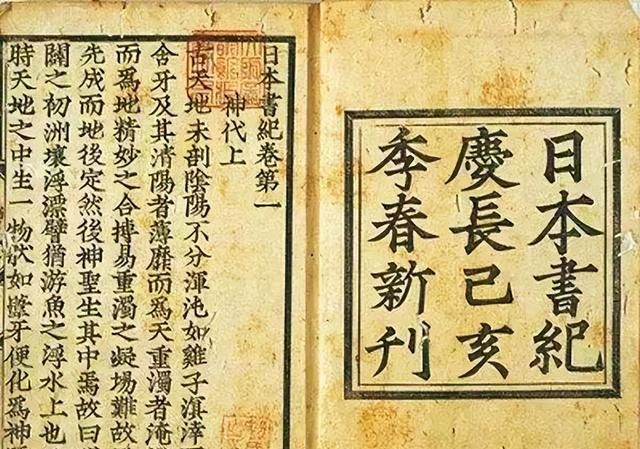 日本書紀
慶長己亥
季春新刊
日本書紀卷第一
神代上
古天地未剖陰陽不分渾沌如雞子溟涬
舍牙及其清陽者薄靡而爲天重濁者淹
而爲地精妙之合搏易重濁之凝場難故
先成而地後定然後神聖生其中焉故曰
闢之初洲壤浮漂譬猶游魚之浮水上也
時天地之中生一物狀如葦牙便化爲神